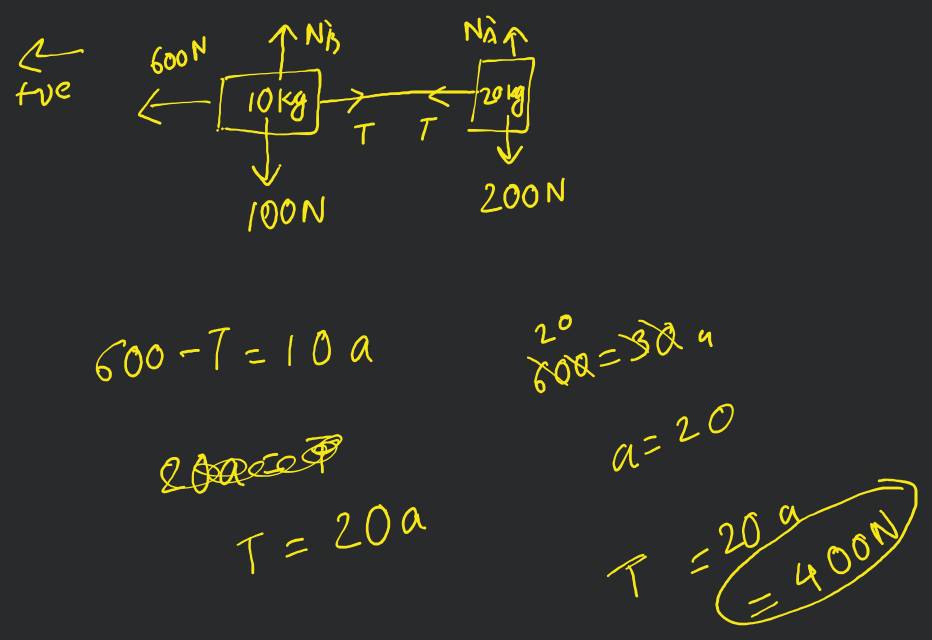 +ve
600N
N_B
N_A
10kg
20kg
T
T
100N
200N
600 - T = 10a
T = 20a
20
600 = 30a
a = 20
T = 20a
= 400N